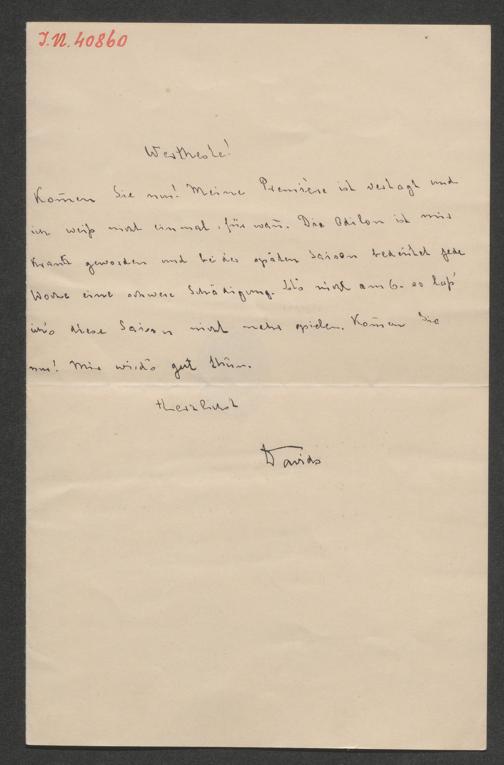 I.N. 40860
Wertheste!
Kom̄en Sie nur! Meine Première ist vertagt und
ich weiß nicht einmal, für wan̄. Die Odilon ist mir
krank geworden und bei der späten Saison bedeutet jede
Woche eine schwere Schädigung. Ist's nicht am 6. so laß'
ich's diese Saison nicht mehr spielen. Kom̄en Sie
nur! Mir wird's gut thun.
Herzlichst
Davids